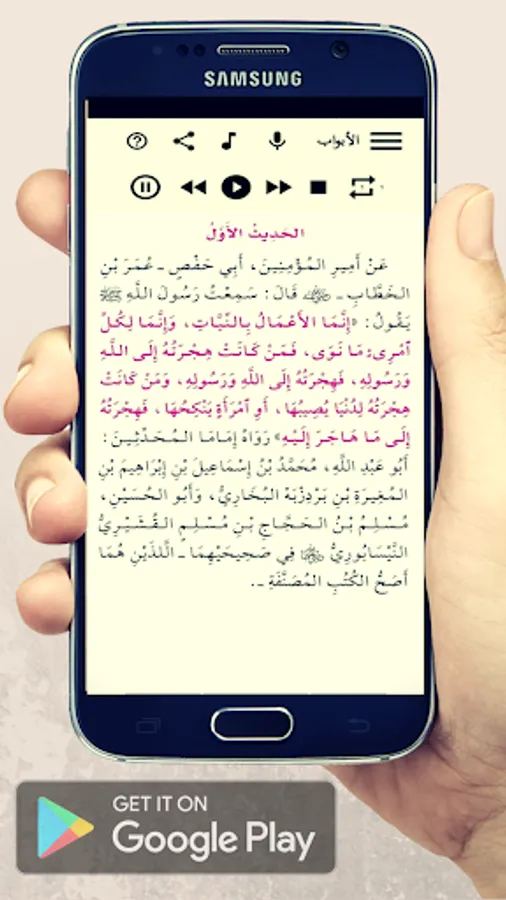 SAMSUNG
الأبواب
الحَدِيثُ الأَوَّلُ
عَنْ أَمِيرِ المُؤْمِنِينَ، أَبِي حَفْصٍ ـ عُمَرَ بْنِ
الخَطَّابِ ـ ﵁ قَالَ: سَمِعْتُ رَسُولَ اللَّهِ ﷺ
يَقُولُ: «إِنَّمَا الأَعْمَالُ بِالنِّيَّاتِ، وَإِنَّمَا لِكُلِّ
ٱمْرِئٍ مَا نَوَى، فَمَنْ كَانَتْ هِجْرَتُهُ إِلَى اللَّهِ
وَرَسُولِهِ، فَهِجْرَتُهُ إِلَى اللَّهِ وَرَسُولِهِ، وَمَنْ كَانَتْ
هِجْرَتُهُ لِدُنْيَا يُصِيبُهَا، أَوِ ٱمْرَأَةٍ يَنْكِحُهَا، فَهِجْرَتُهُ
إِلَى مَا هَاجَرَ إِلَيْهِ» رَوَاهُ إِمَامَا المُحَدِّثِينَ:
أَبُو عَبْدِ اللَّهِ، مُحَمَّدُ بْنُ إِسْمَاعِيلَ بْنِ إِبْرَاهِيمَ بْنِ
المُغِيرَةِ بْنِ بَرْدِزْبَهْ البُخَارِيُّ، وَأَبُو الحُسَيْنِ،
مُسْلِمُ بْنُ الحَجَّاجِ بْنِ مُسْلِمٍ القُشَيْرِيُّ
النَّيْسَابُورِيُّ ﵄ فِي صَحِيحَيْهِمَا ـ اللَّذَيْنِ هُمَا
أَصَحُّ الكُتُبِ المُصَنَّفَةِ ـ.
GET IT ON
Google Play